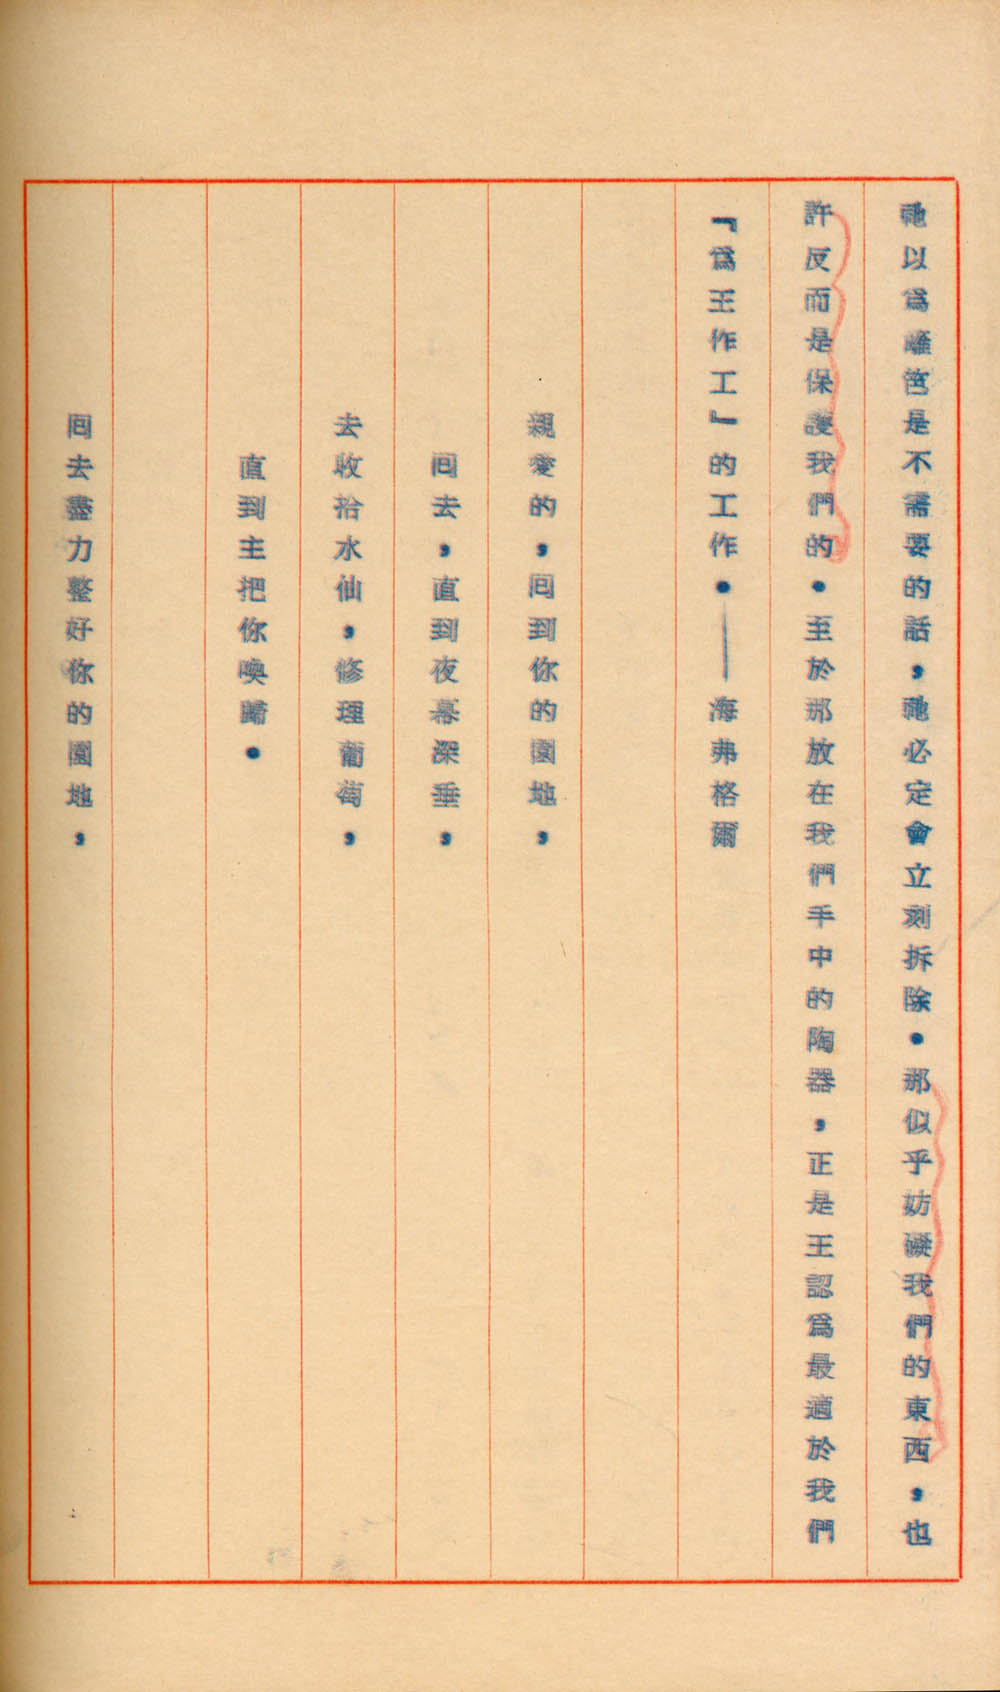 祂以爲籬笆是不需要的話，祂必定會立刻拆除．那似乎妨礙我們的東西，也
許反而是保護我們的．至於那放在我們手中的陶器，正是王認爲最適於我們
『爲王作工』的工作．——海弗格爾
親愛的，囘到你的園地，
囘去，直到夜幕深垂，
去收拾水仙，修理葡萄，
直到主把你喚歸．
囘去盡力整好你的園地，